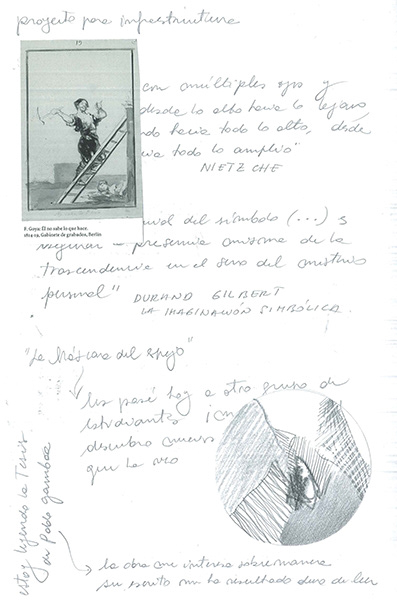 proyecto para infraestructura
19
F. Goya: Él no sabe lo que hace.
1814-19. Gabinete de grabados, Berlín
con múltiples ojos y
desde lo alto hacia lo lejano,
hacia todo lo alto, desde
todo lo amplio"
NIETZCHE
del símbolo (...) es
asegurar – presencia misma de la
trascendencia en el seno del misterio
personal"
DURAND GILBERT
LA IMAGINACIÓN SIMBÓLICA.
"La Máscara del espejo"
les pasé hoy a otro grupo de
estudiantes
descubro nuevos
que la veo
estoy leyendo la Tesis
de Pablo gamboa
la obra me interesa sobremanera
su escrito me ha resultado duro de leer